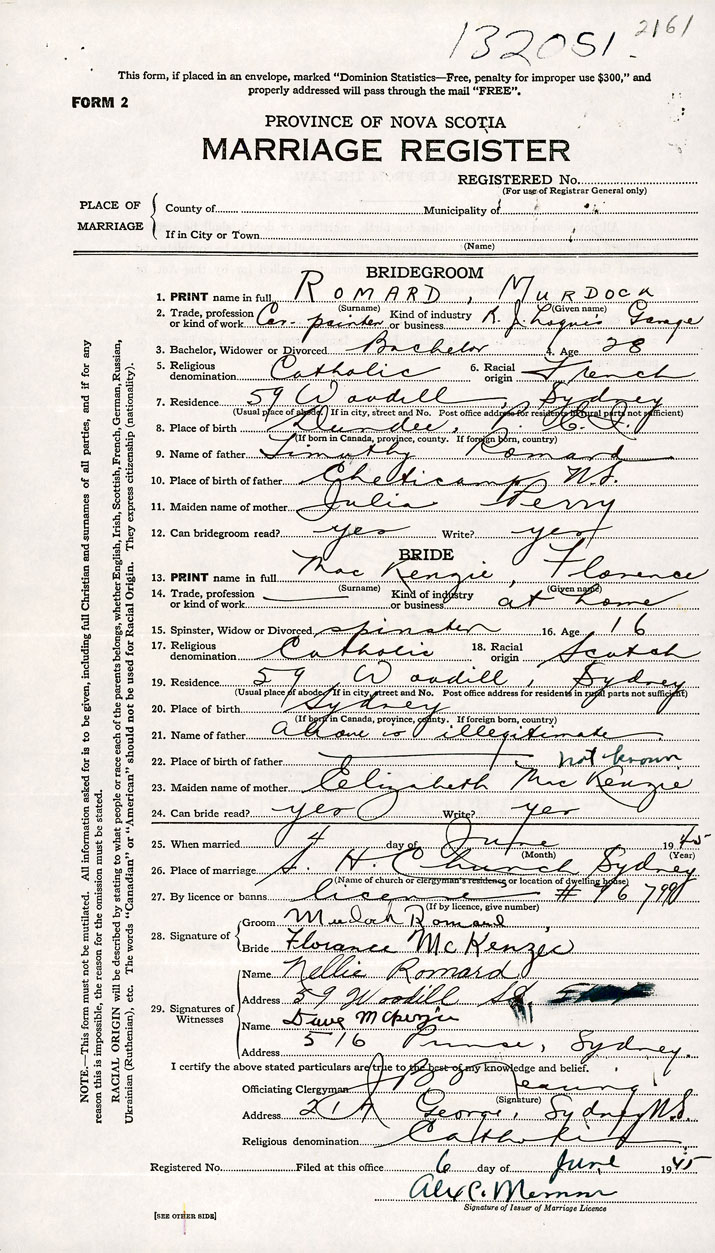 132051.
2161
This form, if placed in an envelope, marked "Dominion Statistics—Free, penalty for improper use $300," and
properly addressed will pass through the mail "FREE".
FORM 2
PROVINCE OF NOVA SCOTIA
MARRIAGE REGISTER
REGISTERED No.
(For use of Registrar General only)
PLACE OF MARRIAGE
County of Municipality of
If in City or Town
(Name)
BRIDEGROOM
1. PRINT name in full ROMARD, MURDOCH
(Surname) (Given name)
2. Trade, profession or kind of work Car-painter Kind of industry or business Garage
3. Bachelor, Widower or Divorced Bachelor 4. Age 28
5. Religious denomination Catholic 6. Racial origin French
7. Residence 59 Woodill, Sydney
(Usual place of abode. If in city, street and No. Post office address for residents in rural parts not sufficient)
8. Place of birth Dundee,
(If born in Canada, province, county. If foreign born, country)
9. Name of father Timothy Romard
10. Place of birth of father Cheticamp N.S.
11. Maiden name of mother Julia Perry
12. Can bridegroom read? yes Write? yes
BRIDE
13. PRINT name in full MacKenzie, Florence
(Surname) (Given name)
14. Trade, profession or kind of work Kind of industry or business at home
15. Spinster, Widow or Divorced spinster 16. Age 16
17. Religious denomination Catholic 18. Racial origin Scotch
19. Residence 59 Woodill, Sydney
(Usual place of abode. If in city, street and No. Post office address for residents in rural parts not sufficient)
20. Place of birth Sydney
(If born in Canada, province, county. If foreign born, country)
21. Name of father Above is illegitimate
22. Place of birth of father not known
23. Maiden name of mother Elizabeth MacKenzie
24. Can bride read? yes Write? yes
25. When married 4 day of June 1945
(Month) (Year)
26. Place of marriage S. H. Church Sydney
(Name of church or clergyman's residence or location of dwelling house)
27. By licence or banns license #
(If by licence, give number)
28. Signature of
Groom Murdoch Romard
Bride Florance McKenzie
29. Signatures of Witnesses
Name Nellie Romard
Address 59 Woodill St
Name Dave
Address 516 Prince, Sydney.
I certify the above stated particulars are true to the best of my knowledge and belief.
Officiating Clergyman
(Signature)
Address George, Sydney N.S.
Religious denomination Catholic
Registered No. Filed at this office 6 day of June 1945
Alex C.
Signature of Issuer of Marriage Licence
[SEE OTHER SIDE]
NOTE.—This form must not be mutilated. All information asked for is to be given, including full Christian and surnames of all parties, and if for any
reason this is impossible, the reason for the omission must be stated.
RACIAL ORIGIN will be described by stating to what people or race each of the parents belongs, whether English, Irish, Scottish, French, German, Russian,
Ukrainian (Ruthenian), etc. The words "Canadian" or "American" should not be used for Racial Origin. They express citizenship (nationality).